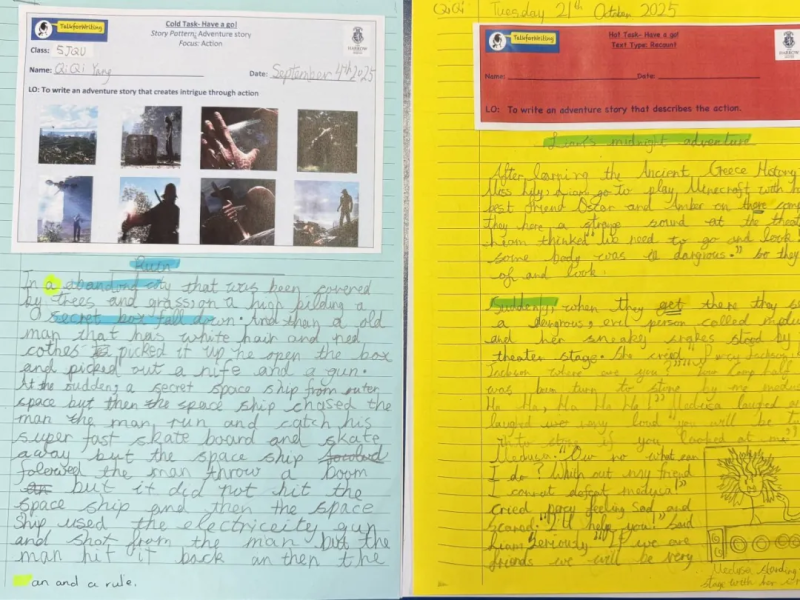 TalkforWriting
Cold Task- Have a go!
Story Pattern: Adventure story
Focus: Action
Class: 5JQU
Name: QiQi Yang
Date: September 4th 2025
LO: To write an adventure story that creates intrigue through action
Ruin
In a abanding city that was been covered
by trees and grass on a high pilding a
a secret box fall down. And than a old
man that has white hair and red
cothes picked it up he open the box
and picked out a nife and a gun.
At the sudden, a secret space ship from outer
space but then the space ship chased the
man the man run and catch his
super fast skate board and skate
away but the space ship
folerwed the man throw a boom
but it did not hit the
space ship and then the space
ship used the electriceity gun
and shot from the man but the
man hit it back an then the
an and a rule.
QiQi
Tuesday 21th October 2025
TalkforWriting
Hot Task- Have a go!
Text Type: Recount
Name:
Date:
LO: To write an adventure story that describes the action.
Liam's midnight adventure
After learning the Ancient Greece History
Miss go to play Minecraft with
best friend Oscar and Amber on there
they here a strange sound at the
thinked "We need to go and look
some body was dargious." So they
of and look.
Suddenly, when they get there they
a dergrous, evil person called
and her sneaky snakes stood by
theater stage. She cried
Jackson where are you?
was turn to stone by me
Ha Ha, Ha Ha Ha!" Medusa laughed
laughed very loud "you will be
into stone if you looked at me"
Medusa. "Ow no what can
I do? Whith out my friend
I connat defeat medusa!"
cried percy feeling sad and
scared. "I'll help you!" said
liam seriously "If we are
friends we will be very
Medusa standing
stage with her